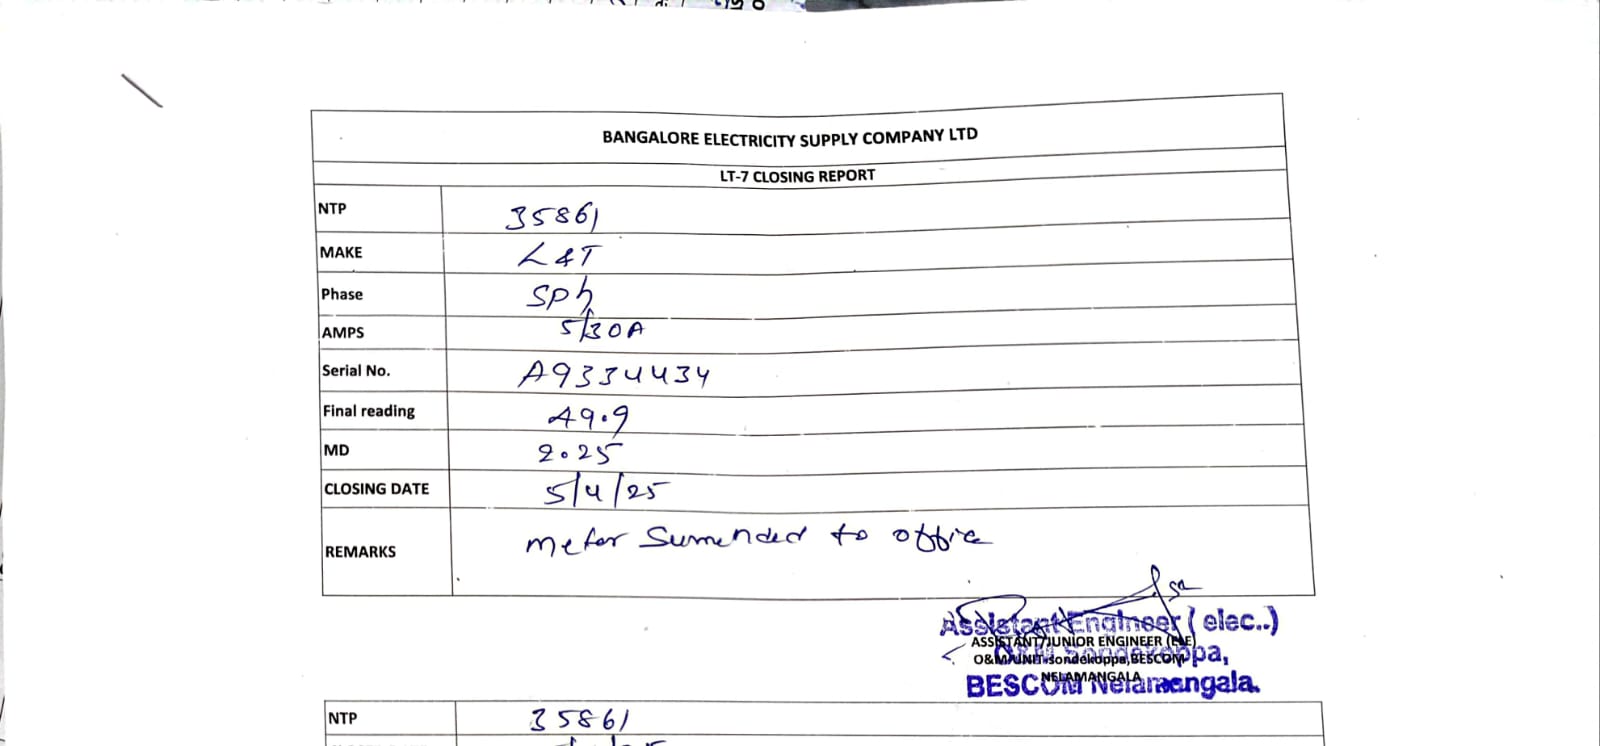 BANGALORE ELECTRICITY SUPPLY COMPANY LTD
LT-7 CLOSING REPORT
NTP 35861
MAKE L&T
Phase SPh
AMPS 5/30A
Serial No. A9334434
Final reading 49.9
MD 2.25
CLOSING DATE 5/4/25
REMARKS meter Surrended to office
Assistant Engineer (elec..)
ASSISTANT/JUNIOR ENGINEER (ELE)
O&M UNIT-sondekoppa,BESCOM
NELAMANGALA
BESCOM Nelamangala.
NTP 35861